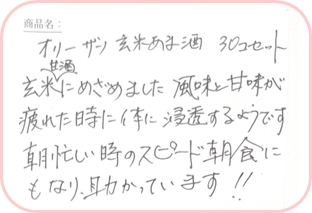 商品名：
オリーザン 玄米あま酒 30コセット
玄米甘酒にめざめました 風味と甘味が
疲れた時に体に浸透するようです
朝忙しい時のスピード朝食に
もなり、助かっています!!